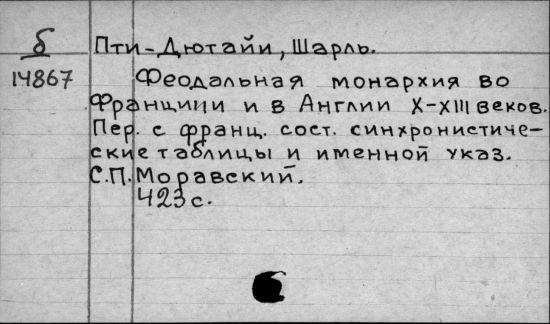 б
Пти-Дютайи, Шарль.
14867
Феодальная монархия во
Франциии и в Англии X-XIII веков.
Пер. с франц. сост. синхронистиче-
ские таблицы и именной указ.
С.П. Моравский.
423 с.